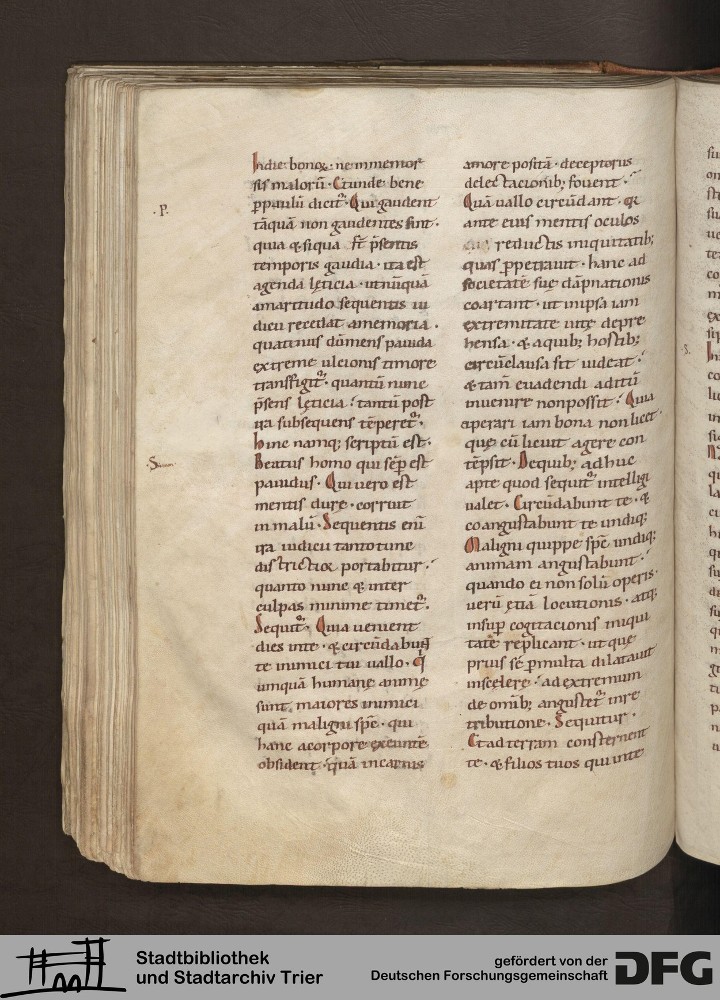 .P.
Indie bonoꝝ · ne inmemor
sis maloꝝ̄ · Et unde bene
p̱ paulū dicit᷑ · Qui gaudent
tāquā non gaudentes sint ·
quia & siqua st̄ p̄sentis
temporis gaudia · ita est
agenda lęticia · utnūquā
amaritudo sequentis iu
dicii recedat amemoria ·
quatinus dūmens pauida
extreme ulcionis timore
transfigit᷑ · quantū nunc
p̄sens lęticia · tantū post
ira subsequens tēperet᷑ ·
hinc namq; scriptū est ·
Beatus homo qui sēp est
pauidus · Qui uero est
mentis dure · corruit
in malū · Sequentis eni
ira iudicii tanto tunc
districtioꝛ portabitur ·
quanto nunc & inter
culpas minime timet᷑ ·
Sequit᷑ · Quia uenient
dies inte · & circūdabunt
te inimici tui uallo · Qͥ
umquā humane anime
sunt maiores inimici
quā maligni spc̄ · qui
hanc acorpore exeuntē
obsident · quā incarnis
amore positā · deceptoriis
delectacionib; fouent ·
Quā uallo circūdant · q
ante eius mentis oculos
reductis iniquitatib;
quas p̱petrauit · hanc ad
societatē suę dāpnationis
coartant · ut inipsa iam
extremitate uitę depre
hensa · & aquib; hostib;
circūclausa sit uideat ·
& tam̄ euadendi aditū
inuenire nonpossit · Quia
operari iam bona non licet ·
que cū licuit agere con
tēpsit · Dequib; adhuc
apte quod sequit᷑ intelligi
ualet · Circūdabunt te · &
coangustabunt te undiq;
Maligni quippe spc̄ undiq;
animam angustabunt ·
quando ei non solū operis ·
uerū etiā locutionis · atq;
insup̱ cogitacionis iniqui
tatē replicant · ut quę
prius sē p̱ multa dilatauit
inscelere · ad extremum
de omīb; angustet᷑ inre
tributione · Sequitur ·
Et ad terram consternent
te · & filios tuos qui inte
Stadtbibliothek
und Stadtarchiv Trier
gefördert von der
Deutschen Forschungsgemeinschaft
DFG